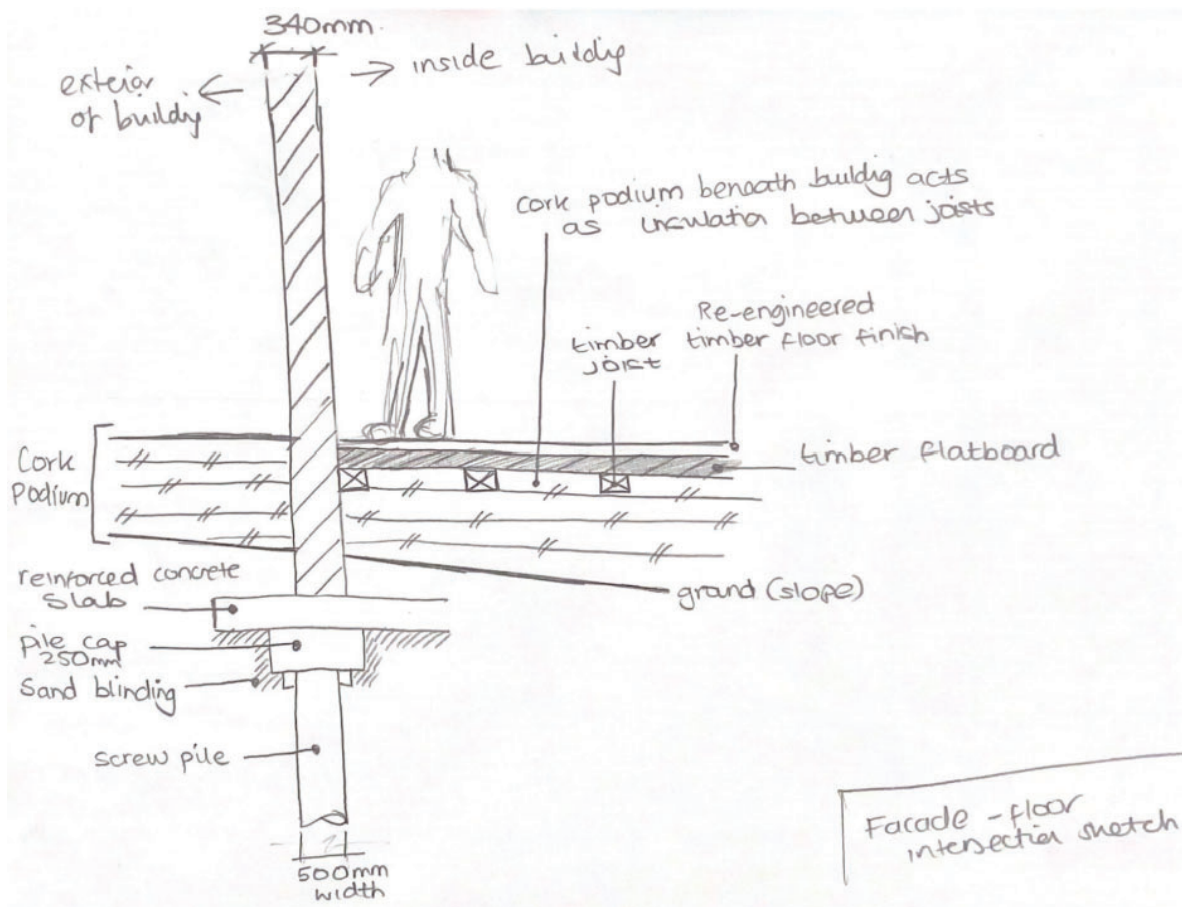 340mm.
exterior
of buildig
inside buildig
cork podium beneath buildig acts
as insulatio between joists
Re-engineered
timber floor finish
timber
joist
timber flatboard
Cork
Podium
ground (slope)
reinforced concrete
slab
pile cap
250mm
Sand blinding
screw pile
500mm
width
Facade - floor
intersectio sketch